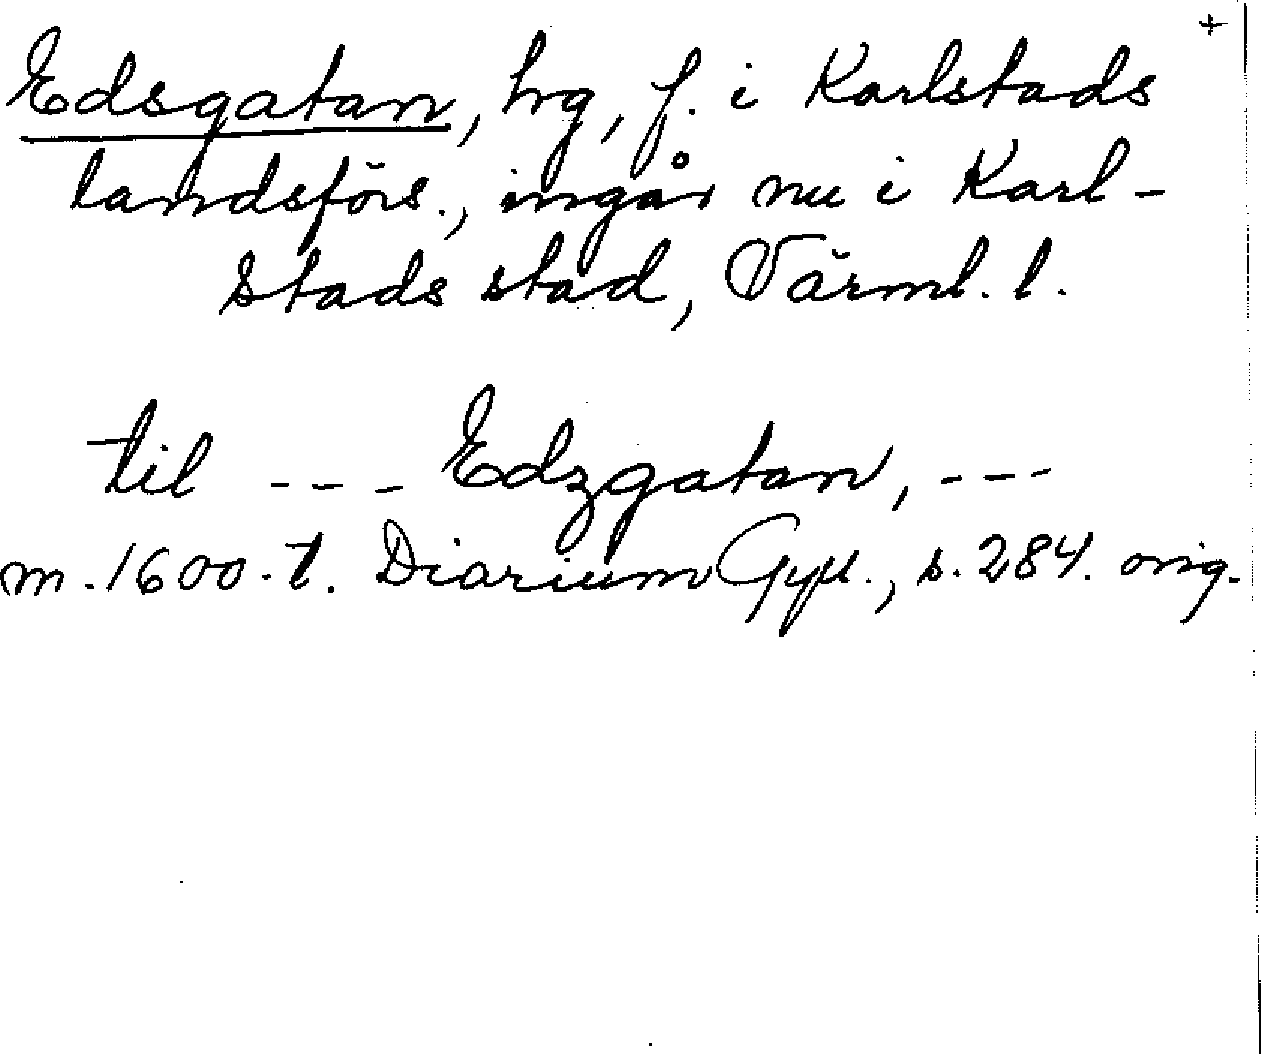 +
Edsgatan, hg, f. i Karlstads
landsförs., ingår nu i Karl-
stads stad, Värml. l.
til --- Edzgatan, ---
m. 1600-t. Diarium Gyll., s. 284. orig.